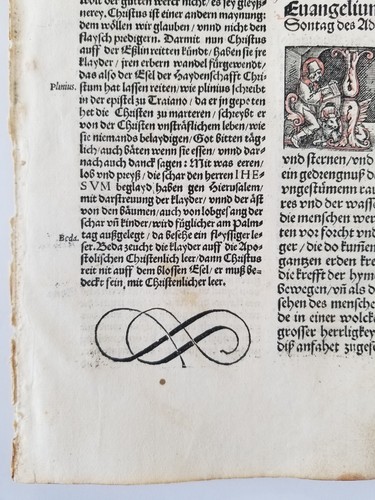 nerey. Christus ist einer andern maynung:
dem wöllen wir glauben / vnnd nicht den
flaysch predigern. Darmit nun Christus
auff der Eßlin reitten kündt / haben sie jre
klayder / jren erbern wandel fürgewendt /
das also der Esel der Haydenschafft Chri-
Plinius. stum hat lassen reiten / wie plinius schreibt
in der epistel zu Traiano / da er in gepeten
het die Christen zu marteren / schreybt er
von der Christen vnsträflichem leben / wie
sie niemands belaydigen / Got bitten täg-
lich / auch bäten wenn sie essen / vnnd dar-
nach auch danck sagen: Mit was eeren /
lob vnd preyß / die schar den herren IHE-
SVM beglayd haben gen Hierusalem /
mit darstreuung der klayder / vnnd der äst
von den bäumen / auch von lobgesang der
schar vñ kinder / wird füglicher am Palm-
Beda. tag außgelegt / da besehe ein fleyssiger le-
ser. Beda zeucht die klayder auff die Apo-
stolischen Christenlich leer / dann Christus
reit nit auff dem blossen Esel / er muß be-
deckt sein, mit Christenlicher leer.
Euangelium
Sontag des Ad
vnd sternen / vnd
ein gedrengnuß d
vngestümen rau
res vnd der wasse
die menschen wer
ten vor forcht vnd
ger / die do kumen
gantzen erden kre
die krefft der hym
Bewegen / vñ als d
sehen des mensche
de in einer wolcke
grosser herrligkey
diß anfahet zugesc